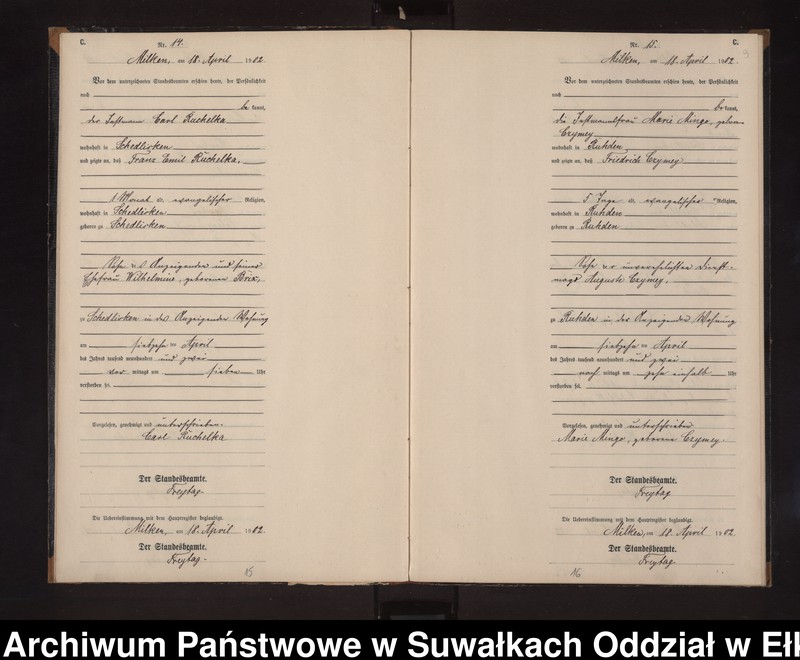 C.
Nr. 14.
Milken, am 18. April 1902.
Vor dem unterzeichneten Standesbeamten erschien heute, der Persönlichkeit
nach
be kannt,
der Instmann Carl Ruchelka
wohnhaft in Schedlisken
und zeigte an, daß Franz Emil Ruchelka,
1 Monat alt, evangelischer Religion,
wohnhaft in Schedlisken
geboren zu Schedlisken
Sohn des Anzeigenden und seiner
Ehefrau Wilhelmine, geborenen Brix,
zu Schedlisken in des Anzeigenden Wohnung
am siebzehnten April
des Jahres tausend neunhundert und zwei
vor mittags um sieben Uhr
verstorben sei.
Vorgelesen, genehmigt und unterschrieben.
Carl Ruchelka
Der Standesbeamte.
Freytag.
Die Uebereinstimmung mit dem Hauptregister beglaubigt.
Milken, am 18. April 1902.
Der Standesbeamte.
Freytag.
15
C.
Nr. 15.
9
Milken, am 18. April 1902.
Vor dem unterzeichneten Standesbeamten erschien heute, der Persönlichkeit
nach
be kannt,
die Instmannsfrau Marie Mingo, geborene
Czymey
wohnhaft in Ruhden
und zeigte an, daß Friedrich Czymey
5 Tage alt, evangelischer Religion,
wohnhaft in Ruhden
geboren zu Ruhden
Sohn der unverehelichten Dienst-
magd Auguste Czymey.
zu Ruhden in der Anzeigenden Wohnung
am siebzehnten April
des Jahres tausend neunhundert und zwei
nach mittags um zehn einhalb Uhr
verstorben sei.
Vorgelesen, genehmigt und unterschrieben
Marie Mingo, geborene Czymey.
Der Standesbeamte.
Freytag
Die Uebereinstimmung mit dem Hauptregister beglaubigt.
Milken, am 18. April 1902.
Der Standesbeamte.
Freytag.
16
Archiwum Państwowe w Suwałkach Oddział w Ełk